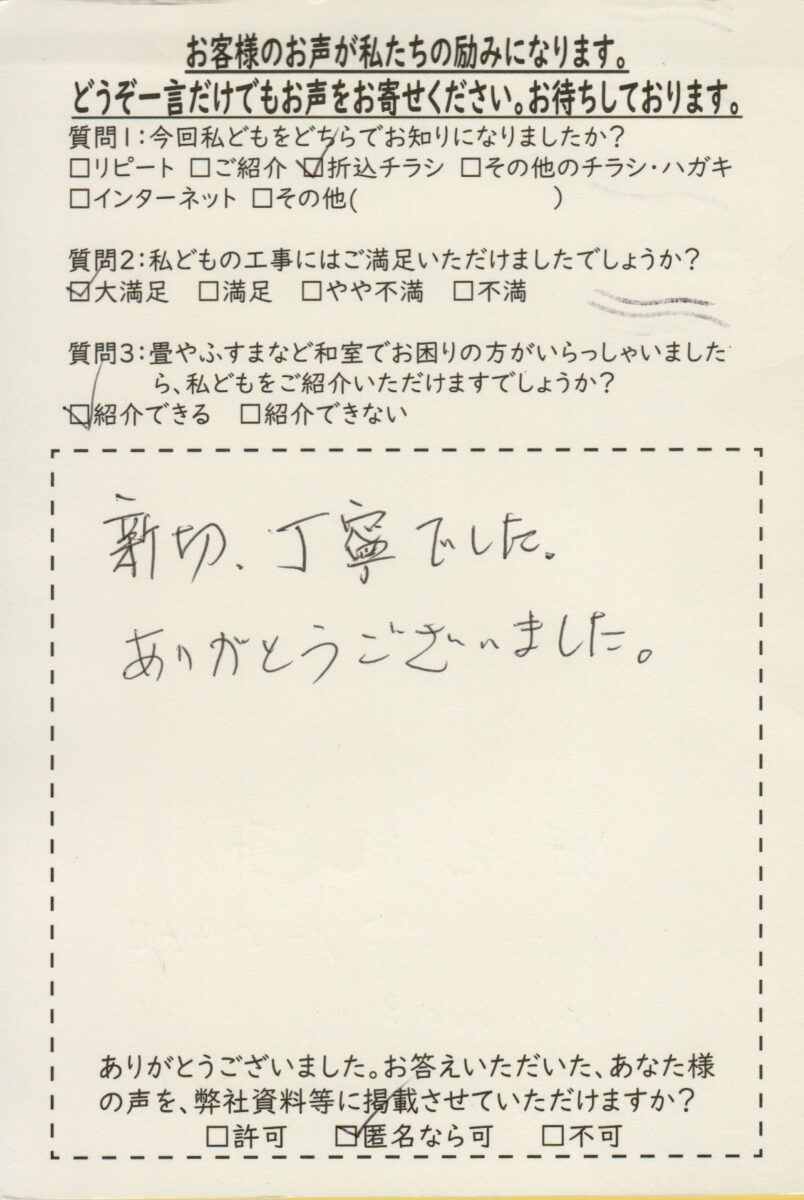 お客様のお声が私たちの励みになります。
どうぞ一言だけでもお声をお寄せください。お待ちしております。
質問1:今回私どもをどちらでお知りになりましたか?
□リピート □ご紹介 ☑折込チラシ □その他のチラシ・ハガキ
□インターネット □その他( )
質問2:私どもの工事にはご満足いただけましたでしょうか?
☑大満足 □満足 □やや不満 □不満
質問3:畳やふすまなど和室でお困りの方がいらっしゃいました
ら、私どもをご紹介いただけますでしょうか?
☑紹介できる □紹介できない
新切、丁寧でした。
ありがとうございました。
ありがとうございました。お答えいただいた、あなた様
の声を、弊社資料等に掲載させていただけますか?
□許可 ☑匿名なら可 □不可